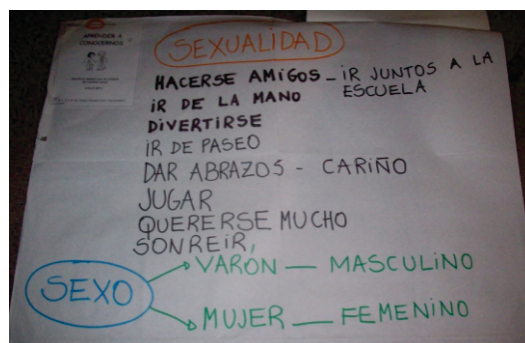 APRENDER A
CONOCERNOS
SEXUALIDAD
HACERSE AMIGOS - IR JUNTOS A LA
ESCUELA
IR DE LA MANO
DIVERTIRSE
IR DE PASEO
DAR ABRAZOS - CARIÑO
JUGAR
QUERERSE MUCHO
SONREIR,
SEXO
VARÓN — MASCULINO
MUJER — FEMENINO